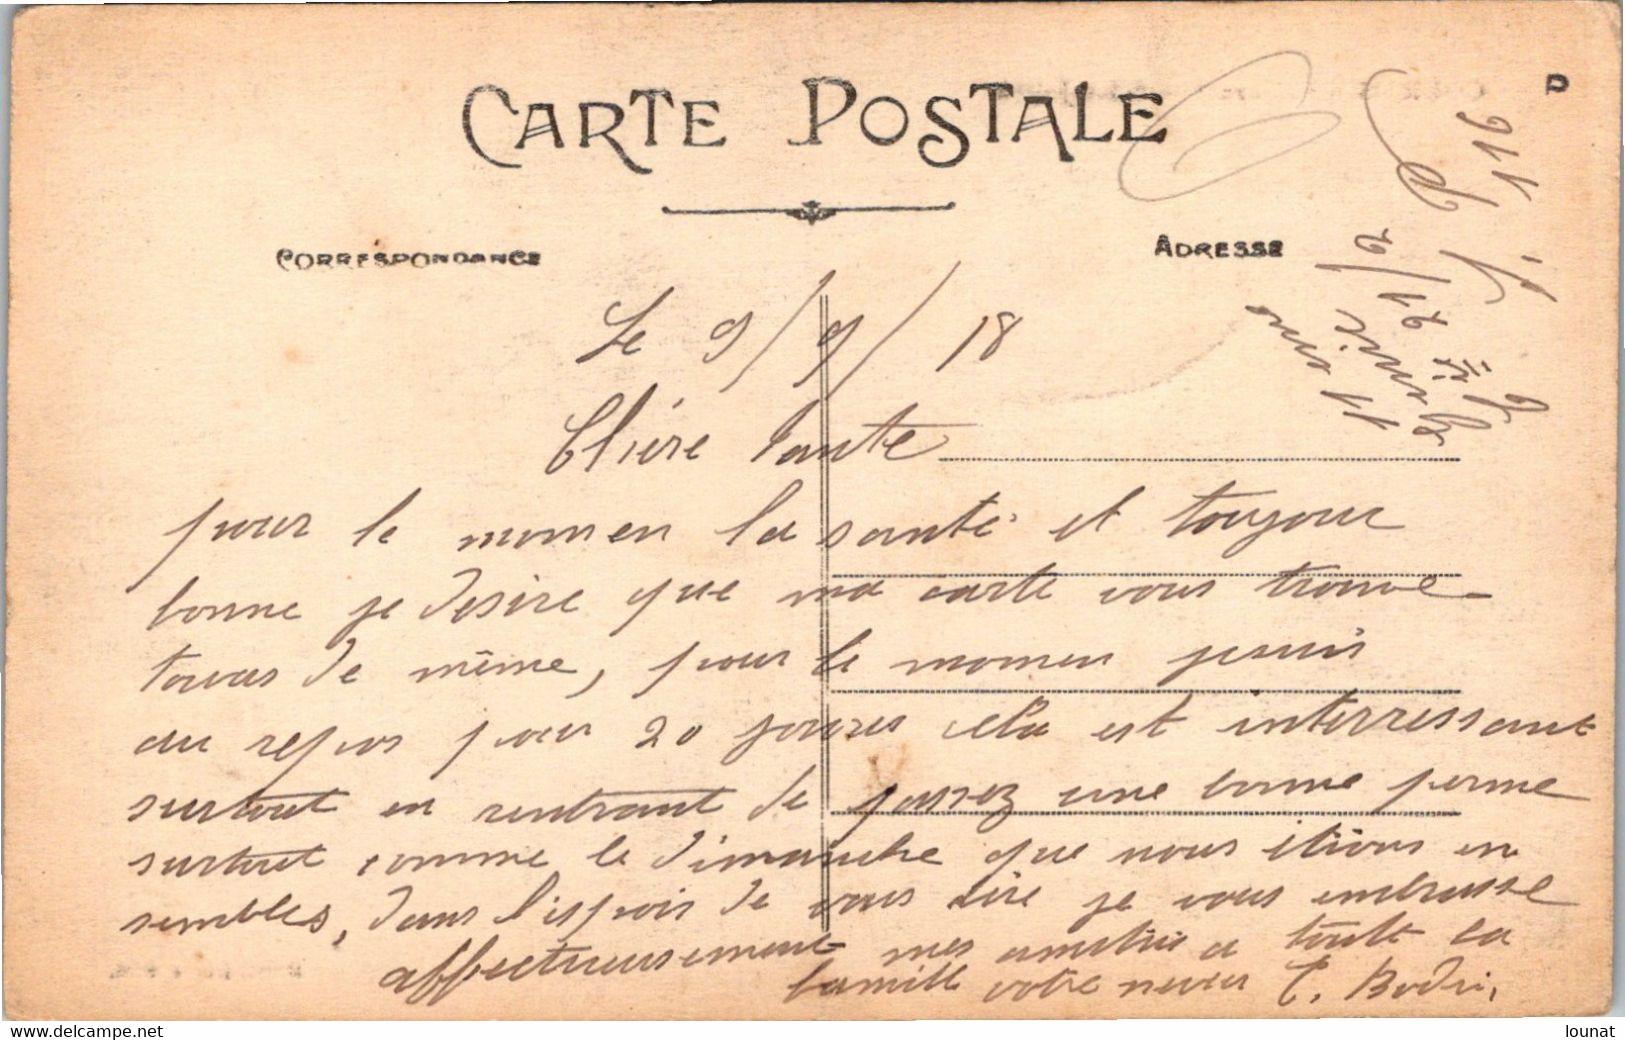 CARTE POSTALE
CORRESPONDANCE
ADRESSE
D
Le 9/9/18
Chére tante
pour le momen la santé et toujour
bonne je desire que ma carte vous trouve
tous de même, pour le momen jesuis
au repos pour 20 joures cela est interressant
surtout en rentrant de passez une bonne perme
surtout comme le dimanche que nous étions en
sembles, dans l'espoir de vous lire je vous embrasse
affectueusement mes amitié a toute la
famille votre neveu
9 1 1 6
11
www.delcampe.net
lounat